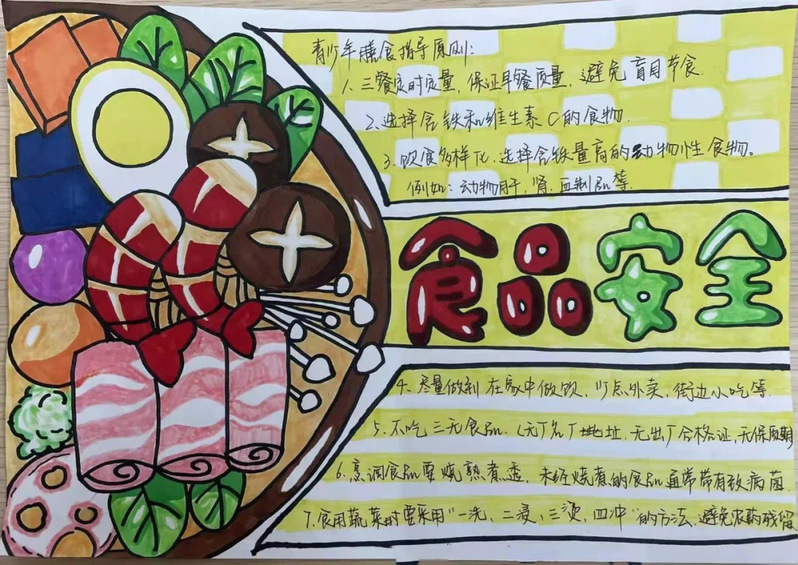 青少年膳食指导原则:
1. 三餐定时定量,保证早餐质量,避免盲目节食.
2.选择含铁和维生素C的食物.
3.饮食多样化.选择含铁量高的动物性食物。
例如:动物肝,肾.血制品等.
食品安全
4.尽量做到在家中做饭,少点外卖,街边小吃等.
5.不吃三无食品.(无厂名厂地址,无出厂合格证,无保质期
6.烹调食品要烧熟煮透,未经烧煮的食品通常带有致病菌
7.食用蔬菜时要采用"一洗,二浸,三烫,四冲"的方法.避免农药残留